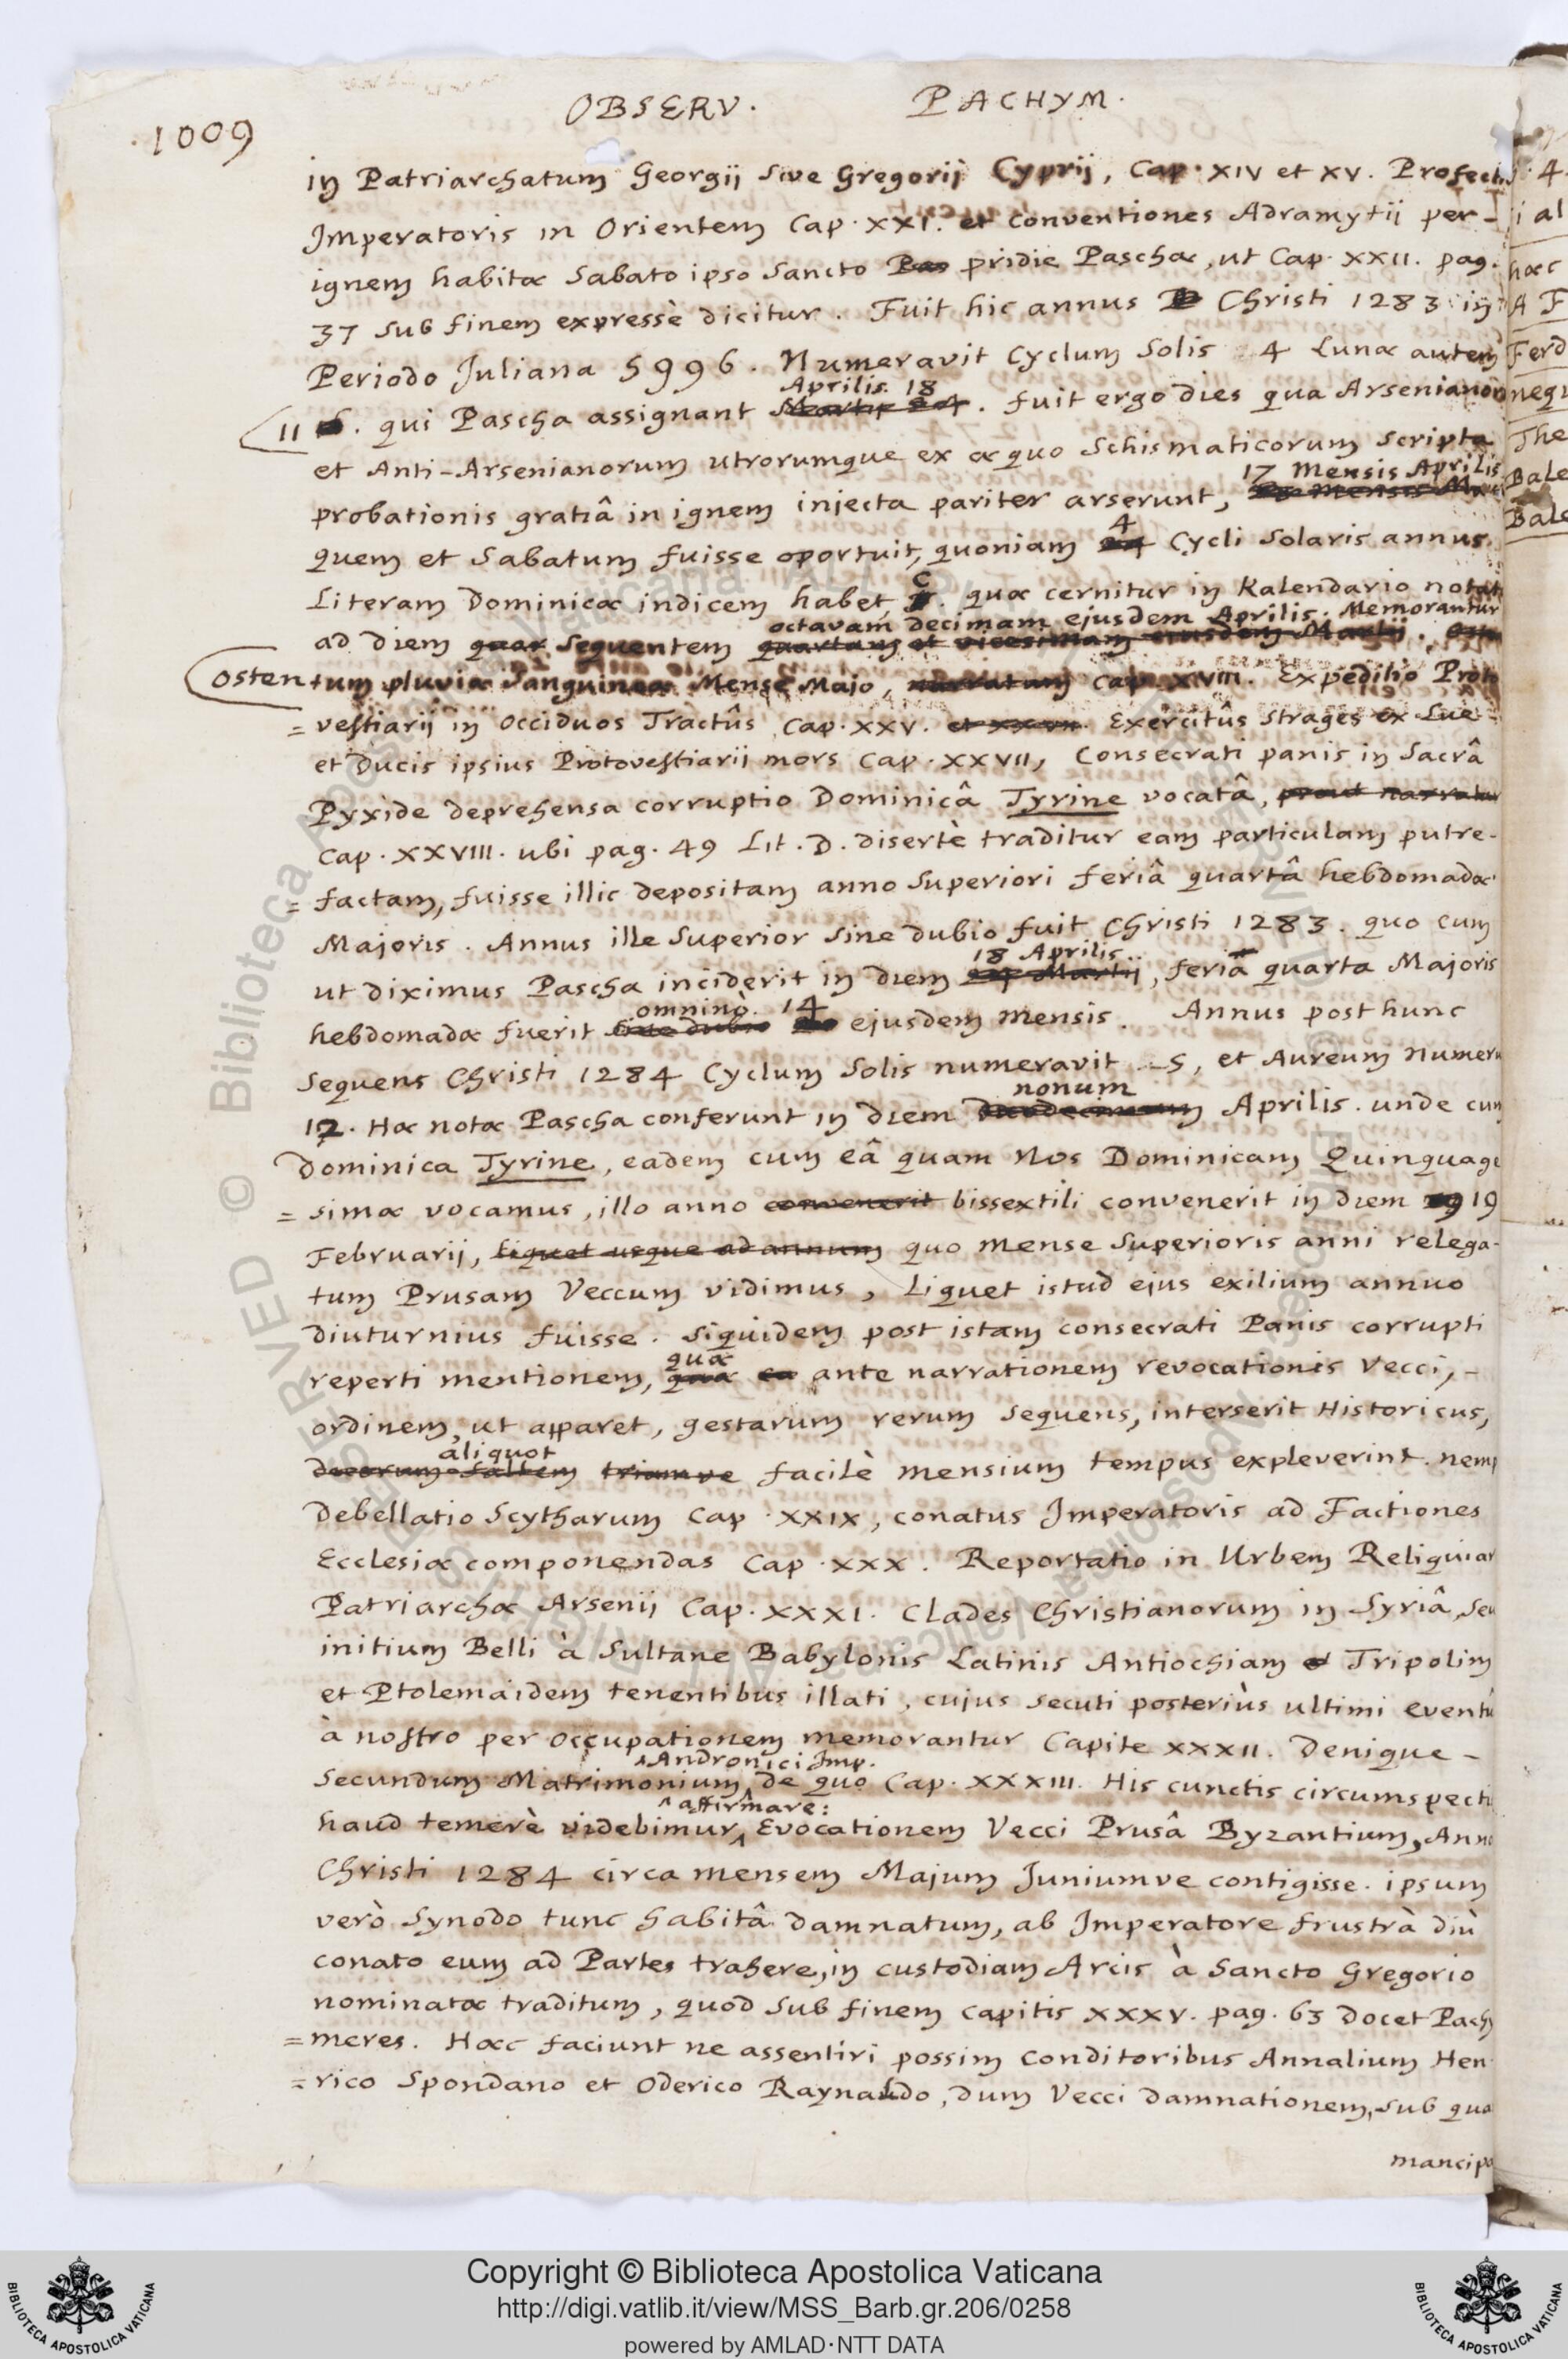 1009
OBSERV. PACHYM.
in Patriarchatum Georgii sive Gregorij Cyprij, Cap. XIV et XV. Profectio
Imperatoris in Orientem Cap. XXI. et conventiones Adramytii per
ignem habitæ Sabato ipso Sancto Pas pridie Paschæ, ut Cap. XXII. pag.
37 sub finem expressè dicitur. Fuit hic annus Christi 1283 in
Periodo Juliana 5996. Numeravit Cyclum Solis 4 Lunæ autem
Aprilis. 18
11 6. qui Pascha assignant Martij 24. fuit ergo dies qua Arsenianorum
et Anti-Arsenianorum utrorumque ex æquo Schismaticorum scripta
17 Mensis Aprilis
probationis gratiâ in ignem injecta pariter arserunt, mensis
4
quem et Sabatum fuisse oportuit, quoniam 24 Cycli Solaris annus
C
Literam Dominicæ indicem habet, quæ cernitur in Kalendario notata
octavam decimam ejusdem Aprilis. Memorantur
ad diem quar sequentem quartam et vicesimam ejusdem Martij.
ostentum pluviæ sanguineæ Mense Majo, narratam cap. XVIII. Expeditio Proto
= vestiarij in occiduos Tractûs cap. XXV. et XXVII. Exercitûs strages ex Lue
et Ducis ipsius Protovestiarii mors cap. XXVII, Consecrati panis in Sacrâ
Pyxide deprehensa corruptio Dominicâ Tyrine vocatâ, prout narratur
cap. XXVIII. ubi pag. 49 Lit. D. disertè traditur eam particulam putre-
= factam, fuisse illic depositam anno superiori feriâ quartâ hebdomadæ
Majoris. Annus ille superior sine dubio fuit Christi 1283. quo cum
18 Aprilis
ut diximus Pascha inciderit in diem 24 Martij, feria quarta Majoris
omninò. 14
hebdomadæ fuerit sine dubio ejusdem mensis. Annus post hunc
sequens Christi 1284 Cyclum Solis numeravit 5, et Aureum Numerum
nonum
12. Hæ notæ Pascha conferunt in diem Aprilis. unde cum
Dominica Tyrine, eadem cum eâ quam Nos Dominicam Quinquage
= simæ vocamus, illo anno convenerit bissextili convenerit in diem 19
Februarij, liquet usque ad annum quo mense superioris anni relega-
tum Prusam Veccum vidimus, Liquet istud ejus exilium annuo
diuturnius fuisse. siquidem post istam consecrati Panis corrupti
quæ
reperti mentionem, quæ ea ante narrationem revocationis Vecci, -
ordinem, ut apparet, gestarum rerum sequens, interserit Historicus,
aliquot
duorum saltem triumve facilè mensium tempus expleverint. nempe
Debellatio Scytharum Cap. XXIX, conatus Imperatoris ad Factiones
Ecclesiæ componendas Cap. XXX. Reportatio in Urbem Reliquiar
Patriarchæ Arsenii Cap. XXXI. Clades Christianorum in Syriâ, seu
initium Belli à Sultane Babylonis Latinis Antiochiam et Tripolim
et Ptolemaidem tenentibus illati, cujus secuti posteriùs ultimi eventu
à nostro per occupationem memorantur Capite XXXII. Denique -
Andronici Imp.
secundum Matrimonium, de quo Cap. XXXIII. His cunctis circumspectis
affirmare:
haud temerè videbimur, Evocationem Vecci Prusâ Byzantium, Anno
Christi 1284 circa mensem Majum Juniumve contigisse. ipsum
verò Synodo tunc habitâ damnatum, ab Imperatore frustrà diù
conato eum ad Partes trahere, in custodiam Arcis à Sancto Gregorio
nominatæ traditum, quod sub finem capitis XXXV. pag. 63 docet Pachy
= meres. Hæc faciunt ne assentiri possim Conditoribus Annalium Hen
= rico Spondano et Oderico Raynaldo, dum Vecci damnationem, sub qua
mancipa
Copyright © Biblioteca Apostolica Vaticana
http://digi.vatlib.it/view/MSS_Barb.gr.206/0258
powered by AMLAD·NTT DATA
BIBLIOTECA APOSTOLICA VATICANA
BIBLIOTECA APOSTOLICA VATICANA